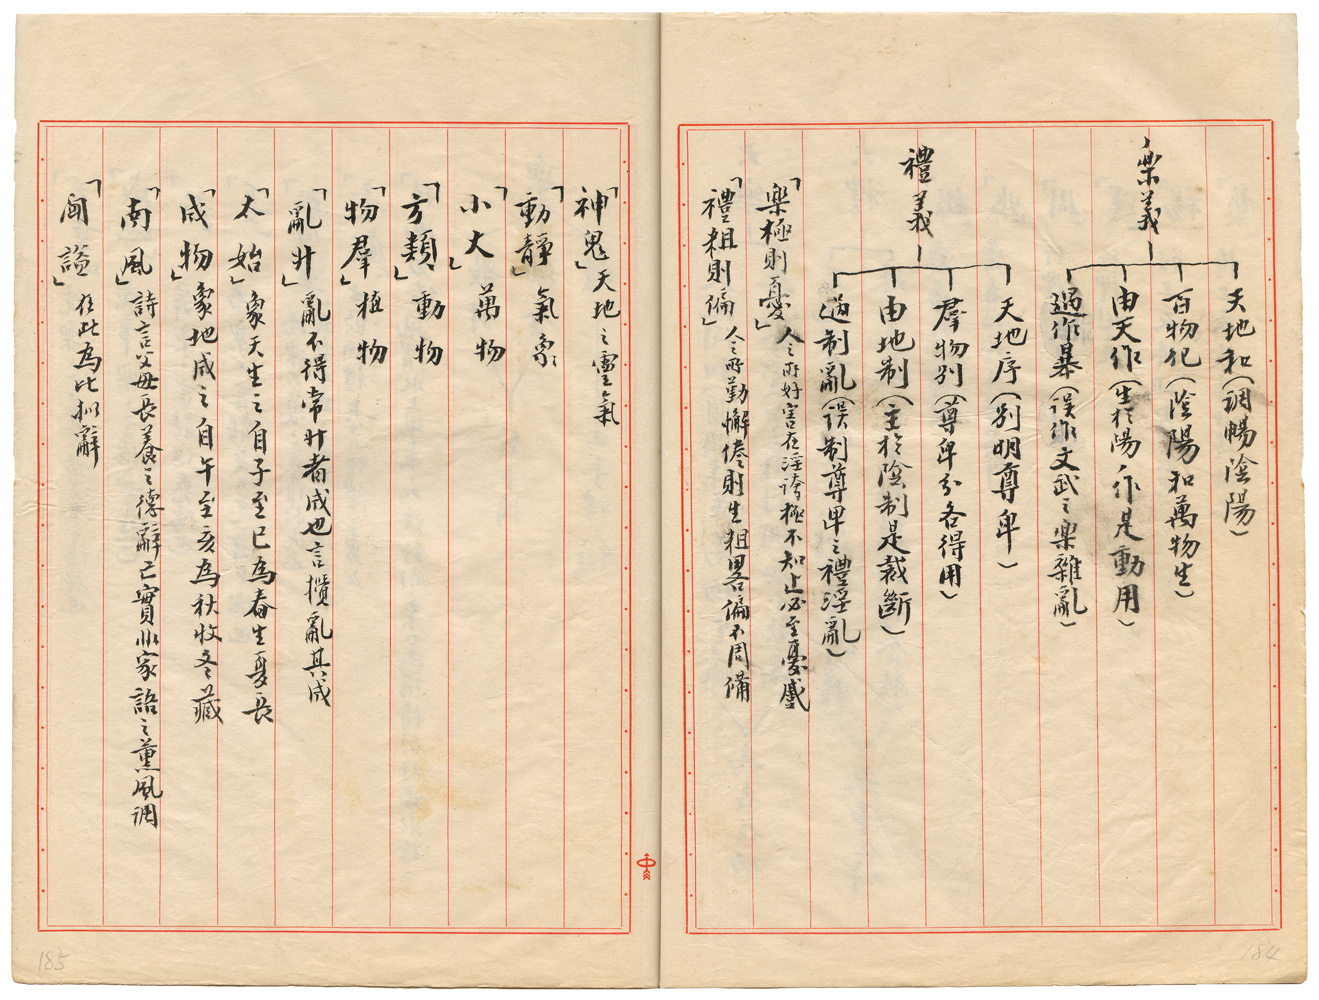 樂義
天地和(調暢陰陽)
百物化(陰陽和萬物生)
由天作(生於陽作是動用)
過作暴(误作文武之樂雜亂)
禮義
天地序(別明尊卑)
羣物別(尊卑分各得用)
由地制(主於陰制是裁斷)
過制亂(误制尊卑之禮淫亂)
「樂極則憂」人之所好害在淫誇極不知止必至憂慼
「禮粗則偏」人之所勤懈倦則生粗畧偏不周備
184
「神鬼」天地之靈氣
「動靜」氣象
「小大」萬物
「方類」動物
「物羣」植物
「亂升」亂不得常升者成也言攬亂其成
「太始」象天生之自子至巳為春生夏長
「成物」象地成之自午至亥為秋收冬藏
「南風」詩言父母長養之德辭亡實從家語之薰風调
「聞諡」於此為比拟辭
185